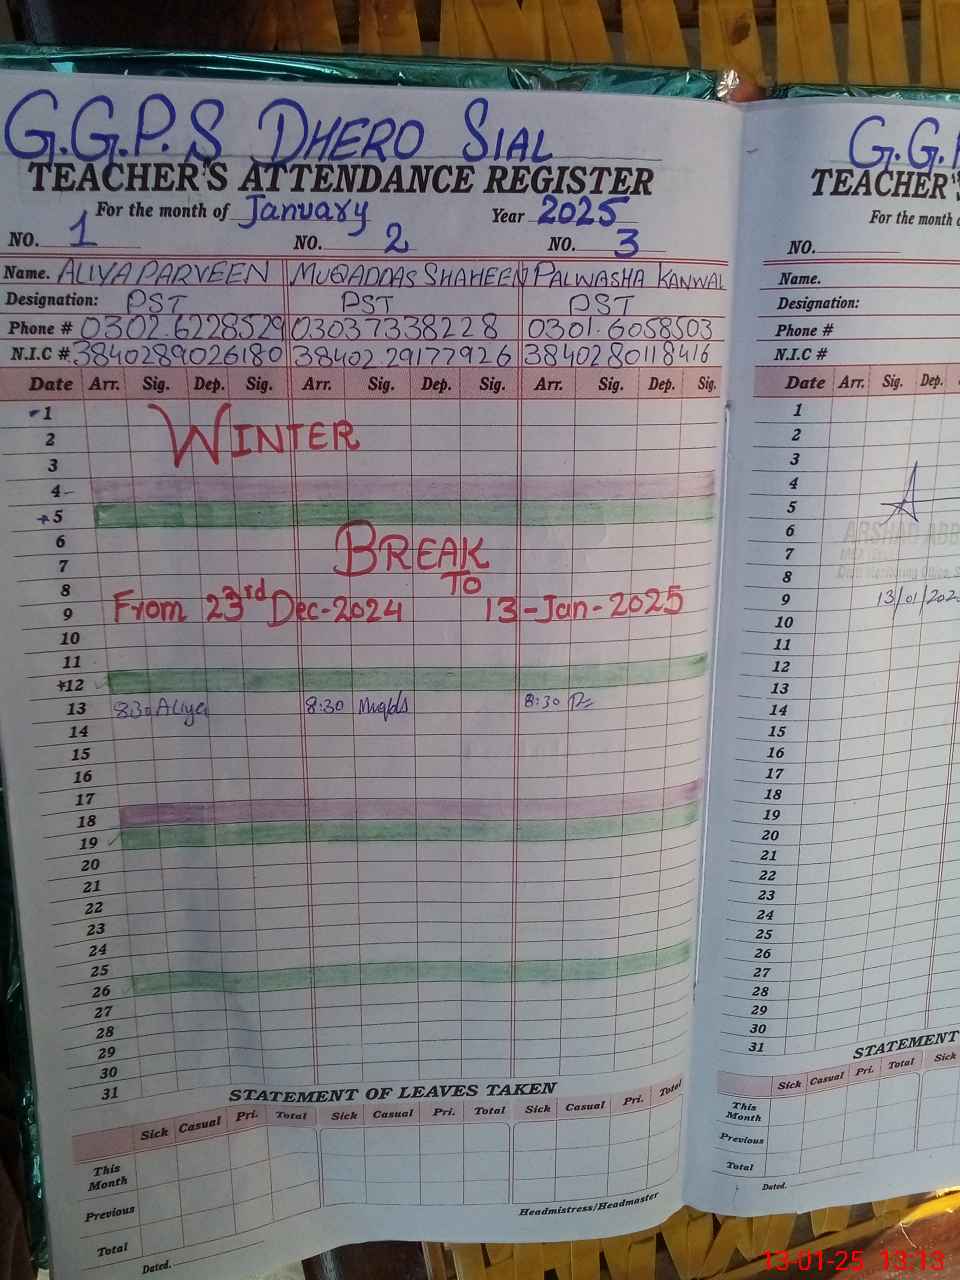 G.G.P.S DHERO SIAL
TEACHER'S ATTENDANCE REGISTER
For the month of January Year 2025
NO. 1 NO. 2 NO. 3
Name. ALIYA PARVEEN MUQADDAS SHAHEEN PALWASHA KANWAL
Designation: PST PST PST
Phone # 0302.6228529 03037338228 0301.6058503
N.I.C # 3840289026180 38402 29177926 3840280118416
Date Arr. Sig. Dep. Sig. Arr. Sig. Dep. Sig. Arr. Sig. Dep. Sig.
1
2 WINTER
3
4
5
6
7 BREAK
8 TO
9 From 23rd Dec-2024 13-Jan-2025
10
11
12
13 830 Aliya 8:30 8:30
14
15
16
17
18
19
20
21
22
23
24
25
26
27
28
29
30
31
STATEMENT OF LEAVES TAKEN
Sick Casual Pri. Total Sick Casual Pri. Total Sick Casual Pri. Total
This Month
Previous
Total
Dated.
Headmistress/Headmaster
G.G.
TEACHER'S
For the month
NO.
Name.
Designation:
Phone #
N.I.C #
Date Arr. Sig. Dep.
1
2
3
4
5
6 ARSHAD ABB
7
8
9 13/01/202
10
11
12
13
14
15
16
17
18
19
20
21
22
23
24
25
26
27
28
29
30
31
STATEMENT
Sick Casual Pri. Total Sick
This Month
Previous
Total
Dated.
13-01-25 13:13